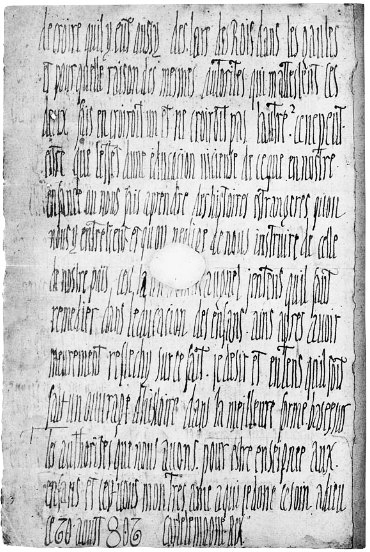 de croire quil y eut aussy des Rois dans les gaules
et pour quelle raison des mesmes autorites qui mattestent ces
deux fais en croiroit un et ne croiroit pas lautre? ce ne peut
estre que leffet dune education vicieuse de ce que en nostre
enfance on nous fais aprendre les histoires estrangeres quon
nous y entretient et quon neglige de nous instruire de celle
de nostre pais cest la auquel jentens quil faut
remedier dans leducation des enfans. ains apres avoir
meurement reflechy sur ce fait. je desir et entens quil soit
fait un ouvrage dhistoire dans la meilleure forme
les authorites que nous avons. pour estre enseignee aux
enfans et cest vous mon tres ame a qui je done ce soin. adieu
ce aoust 802